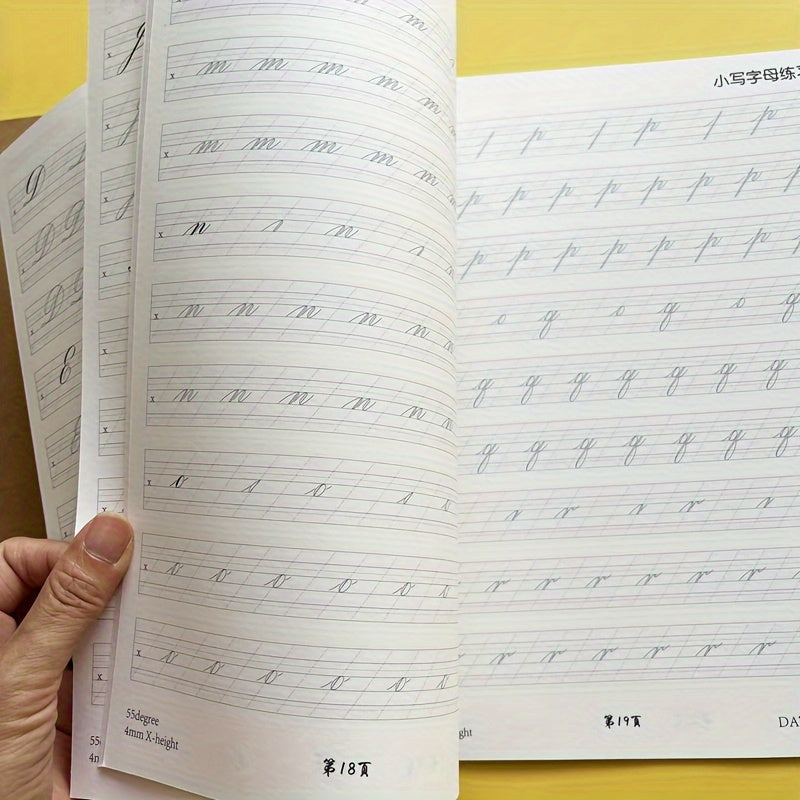 D
D D
D D
E
m
x m m m m m
x m m m m m
x n n
x n n n n n n
x n n n n n n
x o o
x o o o o o o
x o o o o o o
55degree
4mm X-height
第18頁
小写字母练
p p p
p p p p p p p
p p p p p p p
o g o g o g
g g g g g g g
g g g g g g g
r r
r r r r r r
r r r r r r
第19頁